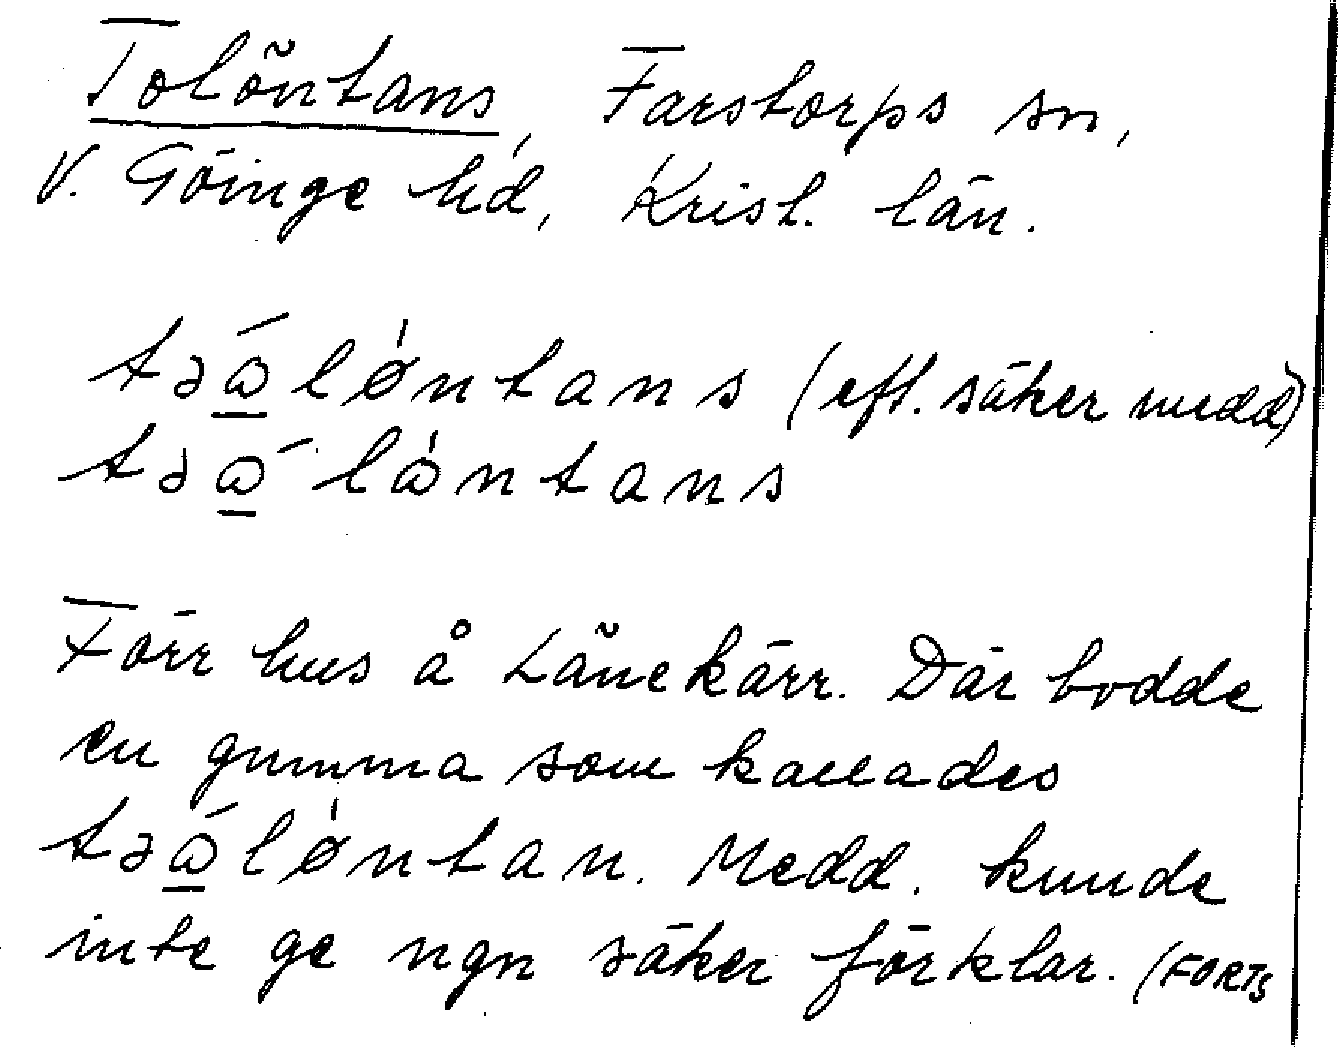 Tolöntans, Farstorps sn,
V. Göinge hd, Krist. län.
təɷ́løntans (eft. säker medd)
təɷ́lɷntans
Förr hus å Lånekärr. Där bodde
en gumma som kallades
təɷ́løntan. Medd. kunde
inte ge ngn säker förklar. (FORTS